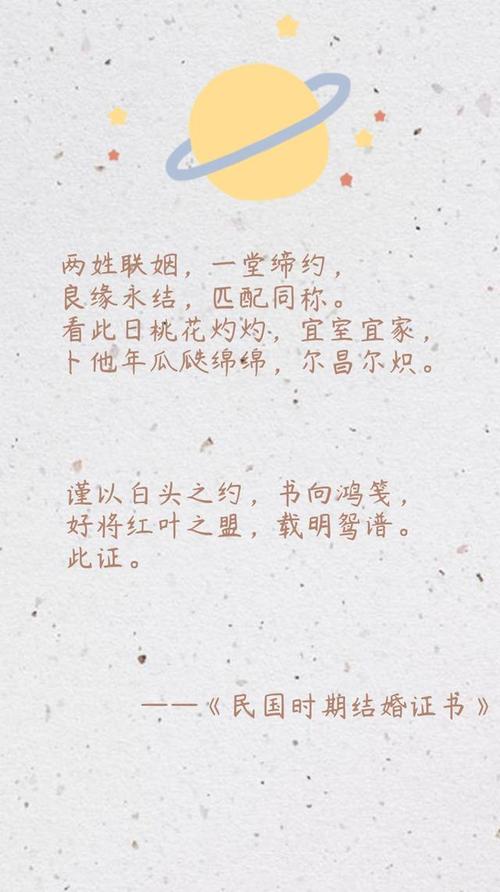 两姓联姻，一堂缔约，
良缘永结，匹配同称。
看此日桃花灼灼，宜室宜家，
卜他年瓜瓞绵绵，尔昌尔炽。
谨以白头之约，书向鸿笺，
好将红叶之盟，载明鸳谱。
此证。
——《民国时期结婚证书》